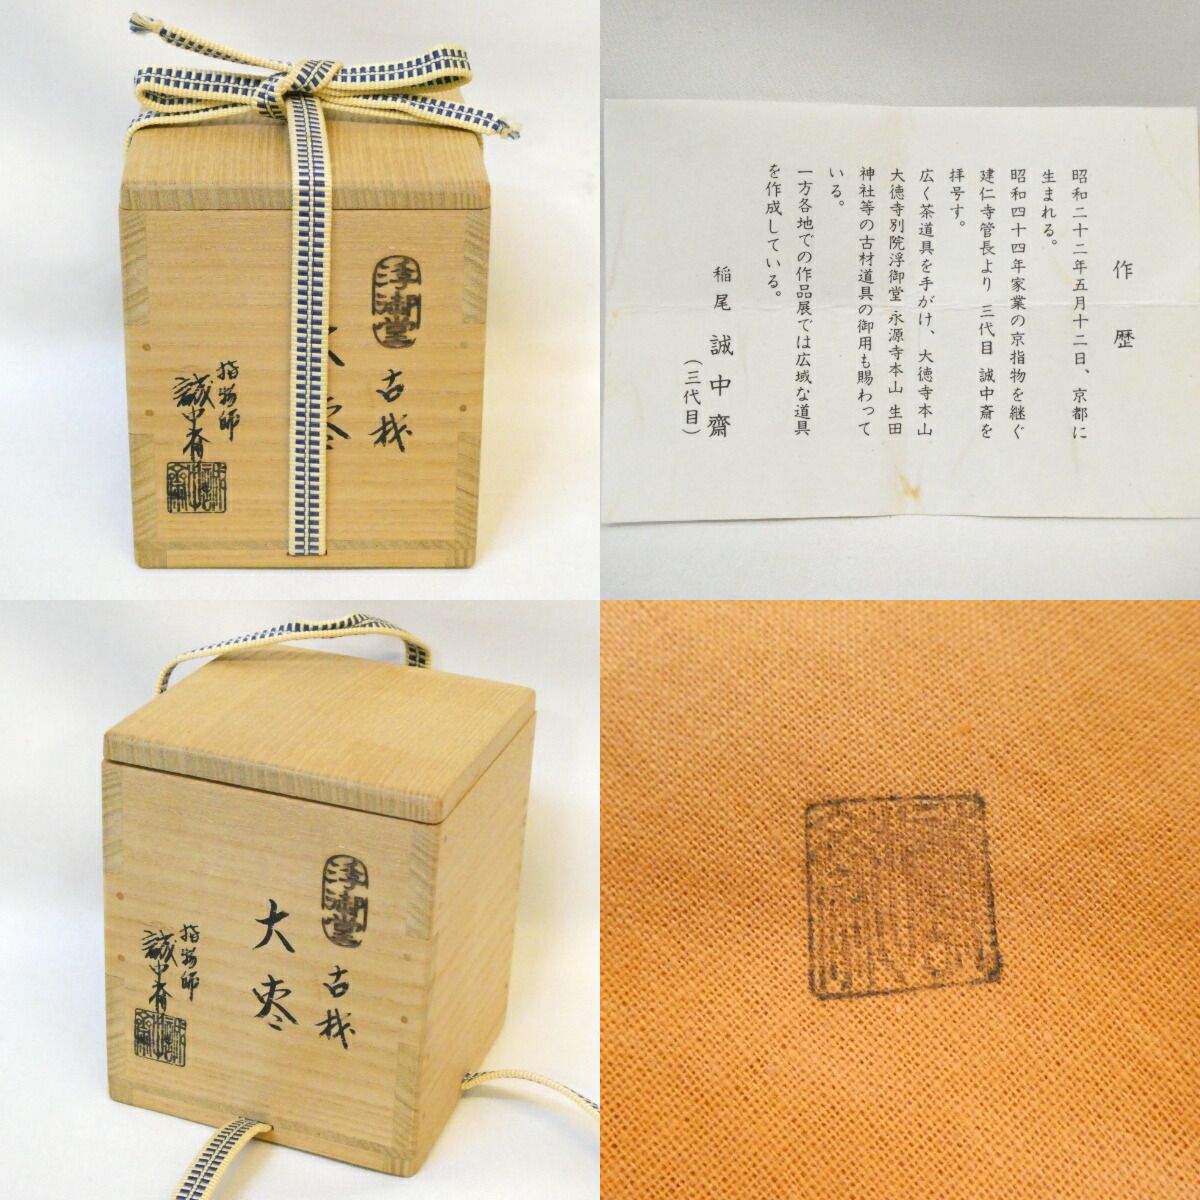 浮御堂
古材
大棗
指物師
誠中斎
作歴
昭和二十二年五月十二日、京都に
生まれる。
昭和四十四年家業の京指物を継ぐ
建仁寺管長より 三代目 誠中斎を
拝号す。
広く茶道具を手がけ、大徳寺本山
大徳寺別院浮御堂 永源寺本山 生田
神社等の古材道具の御用も賜わって
いる。
一方各地での作品展では広域な道具
を作成している。
稲尾 誠中齋
（三代目）
浮御堂
古材
大棗
指物師
誠中斎